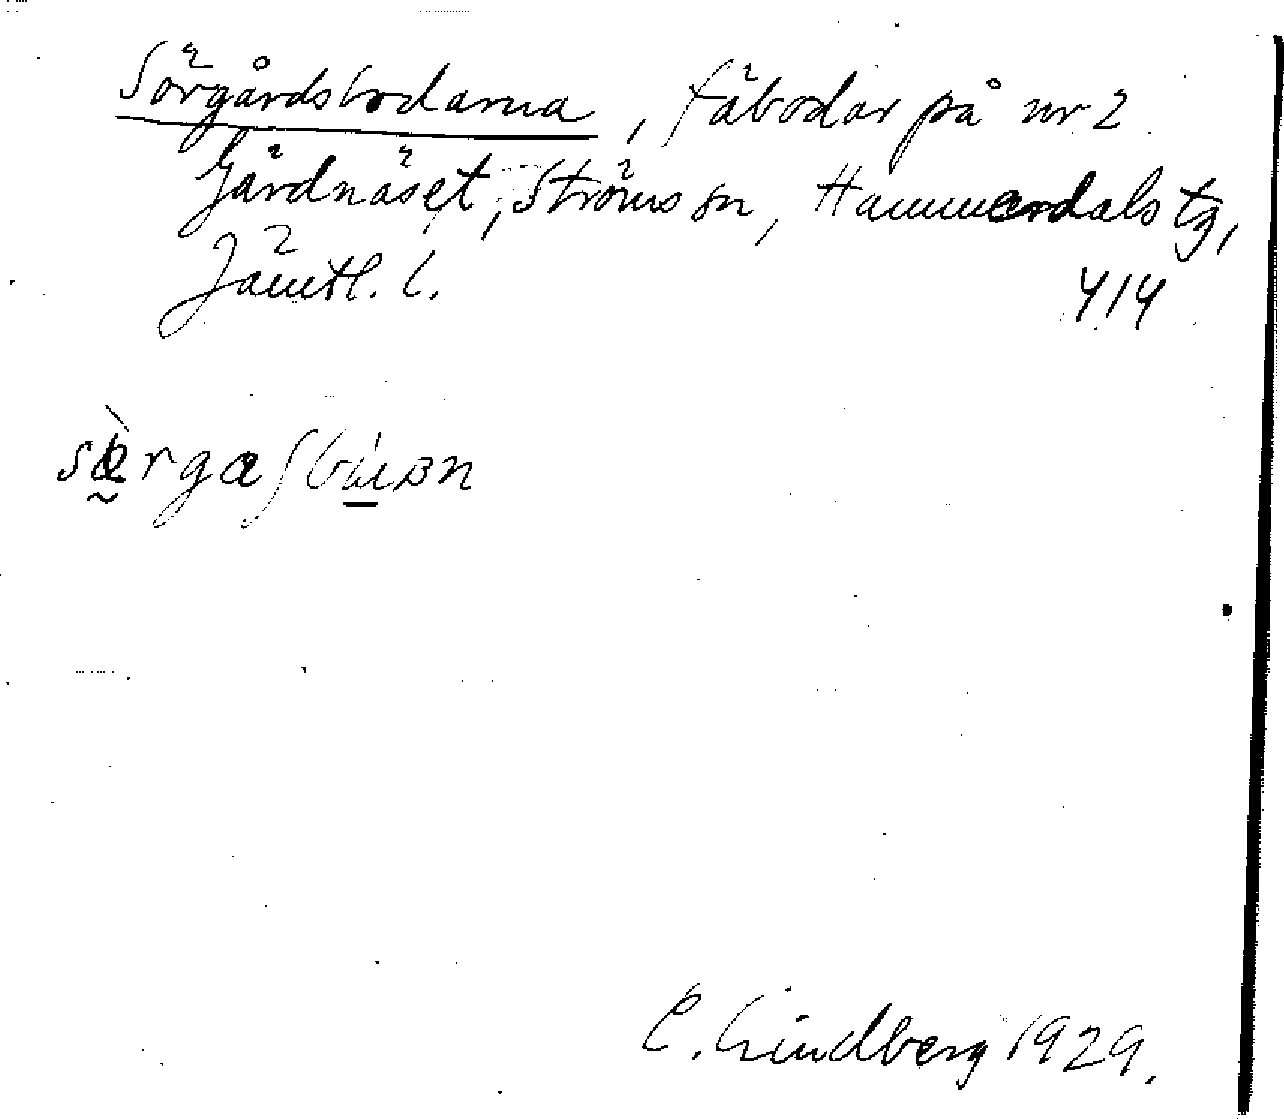 Sörgårdsbodarna, fäbodar på nr 2
Gärdnäset, Ströms sn, Hammerdals tg,
Jämtl. l. 414
E. Lindberg 1929.